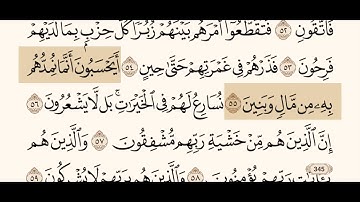 فَٱتَّقُونِ ٥٢ فَتَقَطَّعُوٓا۟ أَمْرَهُم بَيْنَهُمْ زُبُرًا ۖ كُلُّ حِزْبٍۭ بِمَا لَدَيْهِمْ
فَرِحُونَ ٥٣ فَذَرْهُمْ فِى غَمْرَتِهِمْ حَتَّىٰ حِينٍ ٥٤ أَيَحْسَبُونَ أَنَّمَا نُمِدُّهُم
بِهِۦ مِن مَّالٍ وَبَنِينَ ٥٥ نُسَارِعُ لَهُمْ فِى ٱلْخَيْرَٰتِ ۚ بَل لَّا يَشْعُرُونَ ٥٦
إِنَّ ٱلَّذِينَ هُم مِّنْ خَشْيَةِ رَبِّهِم مُّشْفِقُونَ ٥٧ وَٱلَّذِينَ هُم
بِـَٔايَٰتِ رَبِّهِمْ يُؤْمِنُونَ ٥٨ وَٱلَّذِينَ هُم بِرَبِّهِمْ لَا يُشْرِكُونَ ٥٩
345